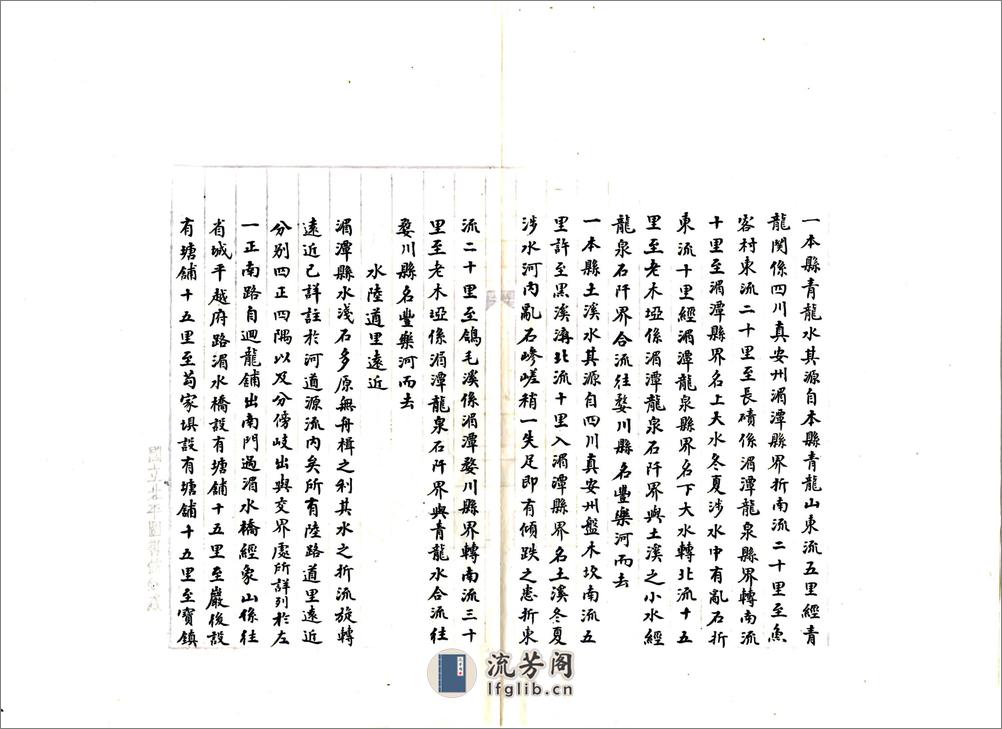 一本縣青龍水其源自本縣青龍山東流五里經青
龍関係四川真安州湄潭縣界折南流二十里至魚
客村東流二十里至長磧係湄潭龍泉縣界轉南流
十里至湄潭縣界名上大水冬夏涉水中有亂石折
東流十里經湄潭龍泉縣界名下大水轉北流十五
里至老木埡係湄潭龍泉石阡界與土溪之小水經
龍泉石阡界合流往婺川縣名豐樂河而去
一本縣土溪水其源自四川真安州盤木坎南流五
里許至黑溪溝北流十里入湄潭縣界名土溪冬夏
涉水河內亂石嵾嵯稍一失足即有傾跌之患折東
流二十里至鴿毛溪係湄潭婺川縣界轉南流三十
里至老木埡係湄潭龍泉石阡界與青龍水合流往
婺川縣名豐樂河而去
水陸道里遠近
湄潭縣水淺石多原無舟楫之利其水之折流旋轉
遠近已詳註於河道源流內矣所有陸路道里遠近
分別四正四隅以及分傍岐出與交界處所詳列於左
一正南路自迴龍舖出南門過湄水橋經象山係往
省城平越府路湄水橋設有塘舖十五里至巖後設
有塘舖十五里至茍家埧設有塘舖十五里至寶鎮
國立北平圖書館
流芳阁
lfglib.cn